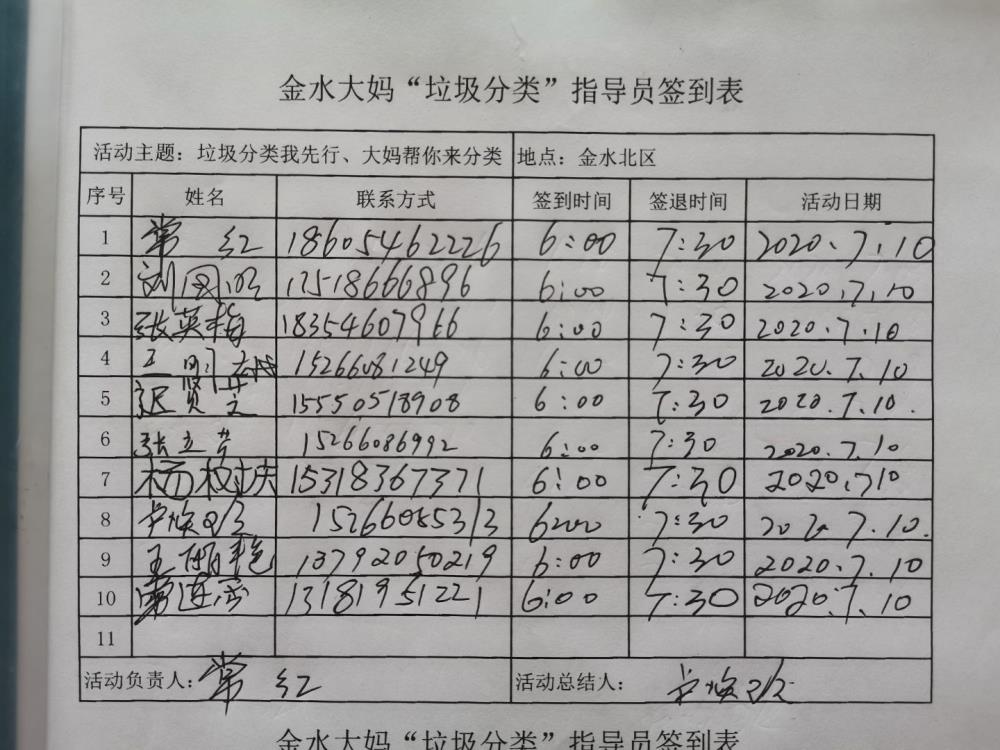 金水大妈“垃圾分类”指导员签到表
活动主题：垃圾分类我先行、大妈帮你来分类 地点：金水北区
序号 姓名 联系方式 签到时间 签退时间 活动日期
1 常红 18605462226 6:00 7:30 2020.7.10
2 刘国明 17518666896 6:00 7:30 2020.7.10
3 张英梅 18354607966 6:00 7:30 2020.7.10
4 王 15266081249 6:00 7:30 2020.7.10
5 迟贤文 15550518908 6:00 7:30 2020.7.10.
6 张立芳 15266086992 6:00 7:30 2020.7.10
7 杨树庆 15318367371 6:00 7:30 2020.710
8 15266085313 6:00 7:30 2020 7.10.
9 王丽艳 13792050219 6:00 7:30 2020.7.10
10 13181951221 6:00 7:30 2020.7.10
11
活动负责人：常红 活动总结人：
金水大妈“垃圾分类”指导员签到表